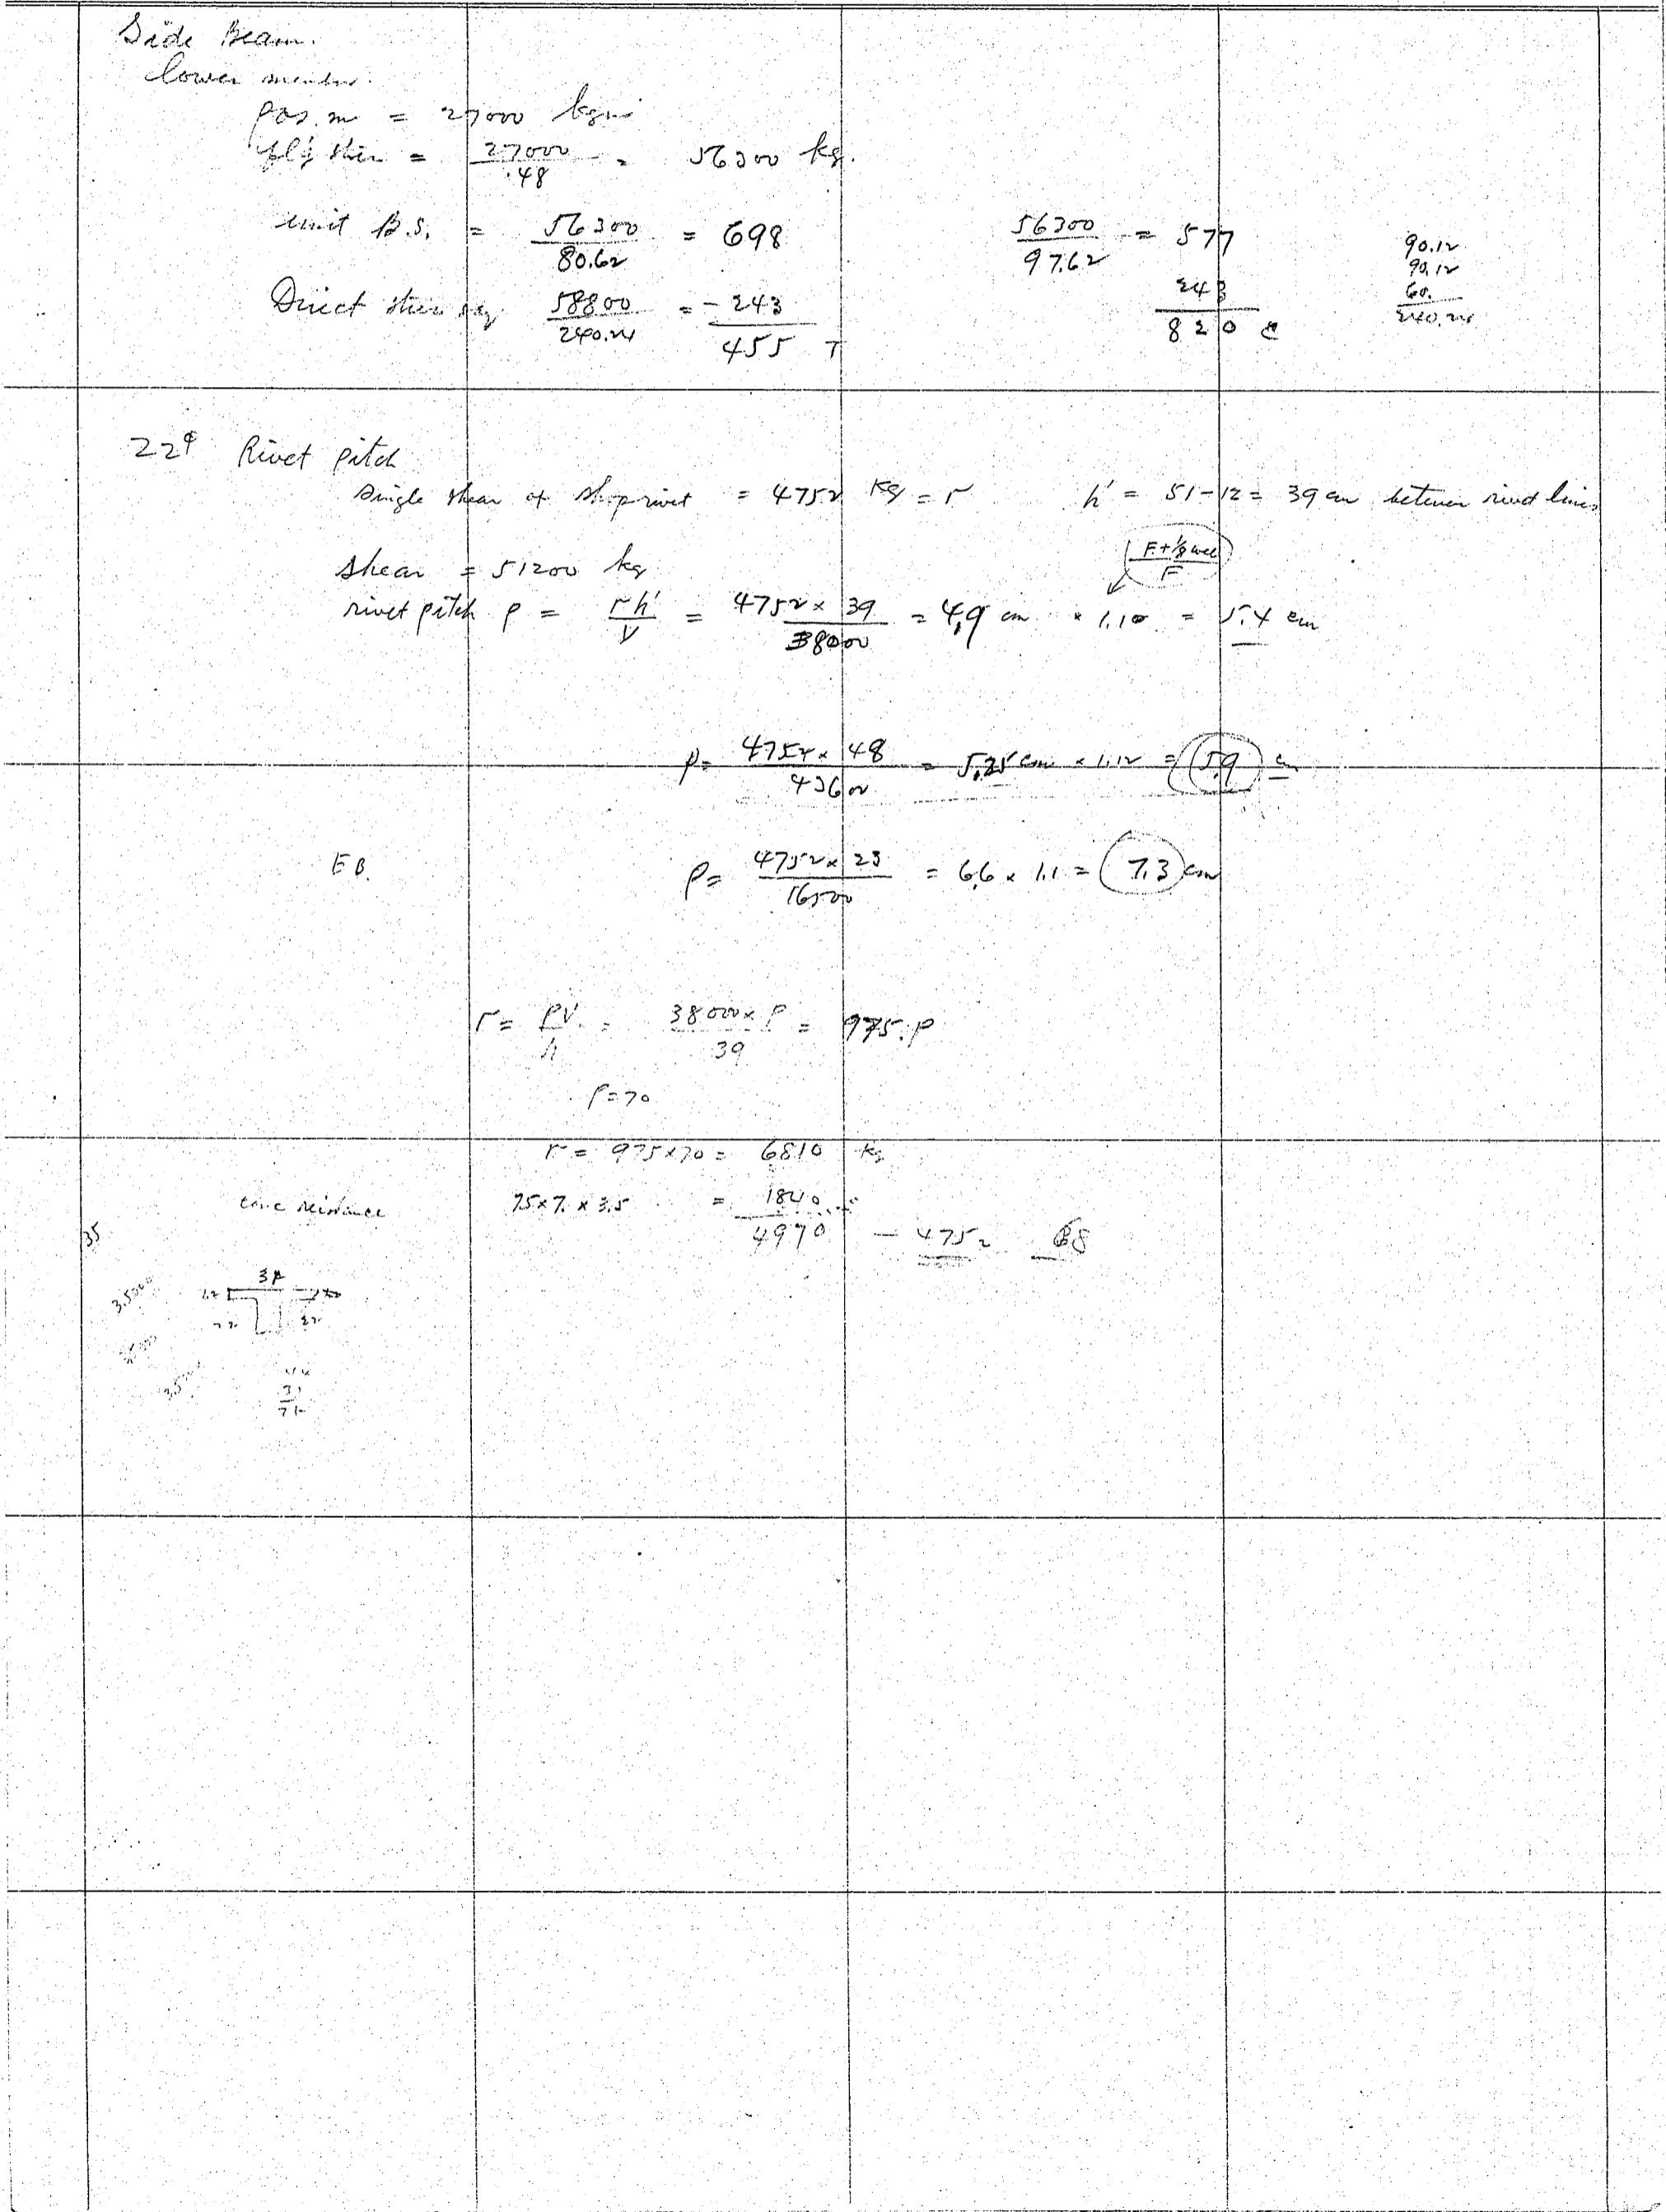 Side Beam.
lower member.
pos. m = 27000 kgm
flg stress = 27000 / .48 = 56300 kg.
unit B.S. = 56300 / 80.62 = 698
56300 / 97.62 = 577
90.12
90.12
60.
240.24
Direct stress 58800 / 240.24 = -243
455 T
243
820 c
22φ Rivet pitch
single shear of shop rivet = 4752 kg = r h' = 51-12 = 39 cm between rivet lines
shear = 51200 kg
F + 1/8 web / F
rivet pitch p = rh' / V = 4752 × 39 / 38000 = 4.9 cm × 1.10 = 5.4 cm
p = 4752 × 48 / 43600 = 5.25 cm × 1.12 = 5.9 cm
E B. p = 4752 × 23 / 16500 = 6.6 × 1.1 = 7.3 cm
r = pV / h = 38000 × p / 39 = 975 p
p = 70
r = 975 × 70 = 6810 kg
conc resistance 75 × 7. × 3.5 = 1840
4970 - 4752
35